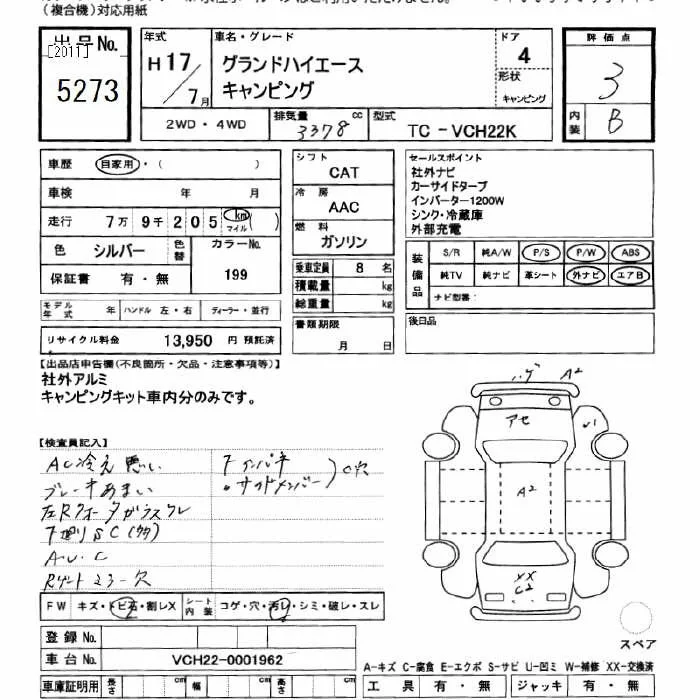 （複合機）対応用紙
出品No.
[2011]
5273
年式
H17/7月
車名・グレード
グランドハイエース
キャンピング
ドア
4
形状
キャンピング
評価点
3
内装
B
2WD・4WD
排気量
3378
cc
型式
TC-VCH22K
車歴
自家用・（　　　）
車検　年　月
走行
7万9千205
km
マイル
（　）
色
シルバー
色替
カラーNo.
199
保証書　有・無
モデル年式　年
ハンドル　左・右
ディーラー・並行
リサイクル料金　13,950　円　預託済
シフト
CAT
冷房
AAC
燃料
ガソリン
乗車定員　8　名
積載量　kg
総重量　kg
書類期限
月　日
セールスポイント
社外ナビ
カーサイドタープ
インバーター1200W
シンク・冷蔵庫
外部充電
装備品
S/R　純A/W　P/S　P/W　ABS
純TV　純ナビ　革シート　外ナビ　エアB
ナビ型番：
後日品
【出品店申告欄(不良箇所・欠品・注意事項等)】
社外アルミ
キャンピングキット車内分のみです。
【検査員記入】
AC冷え悪い
ブレーキあまい
左Rクォータガラスズレ
下廻りSC(多)
A.U.C
Rゲートミラー欠
下インパネ
・サイドメンバー
C穴
ハゲ　A2
アセ
A2
XX
C2
FW　キズ・トビ石・割レX
2
シート内装　コゲ・穴・汚レ・シミ・破レ・スレ
2
登録No.
車台No.　VCH22-0001962
車庫証明用　長さ　cm　幅　cm　高さ　cm
スペア
A-キズ C-腐食 E-エクボ S-サビ U-凹ミ W-補修 XX-交換済
工具　有・無　ジャッキ　有・無